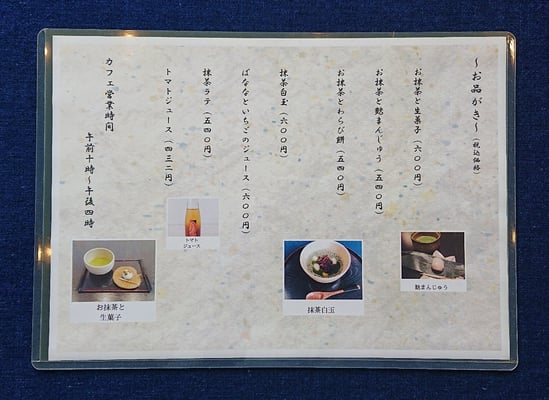 ～お品がき～(税込価格)
お抹茶と生菓子(六〇〇円)
お抹茶と麩まんじゅう(五四〇円)
お抹茶とわらび餅(五四〇円)
抹茶白玉(六〇〇円)
ばななといちごのジュース(六〇〇円)
抹茶ラテ(五四〇円)
トマトジュース(四三二円)
カフェ営業時間
午前十時～午後四時
麩まんじゅう
抹茶白玉
トマト
ジュース
お抹茶と
生菓子